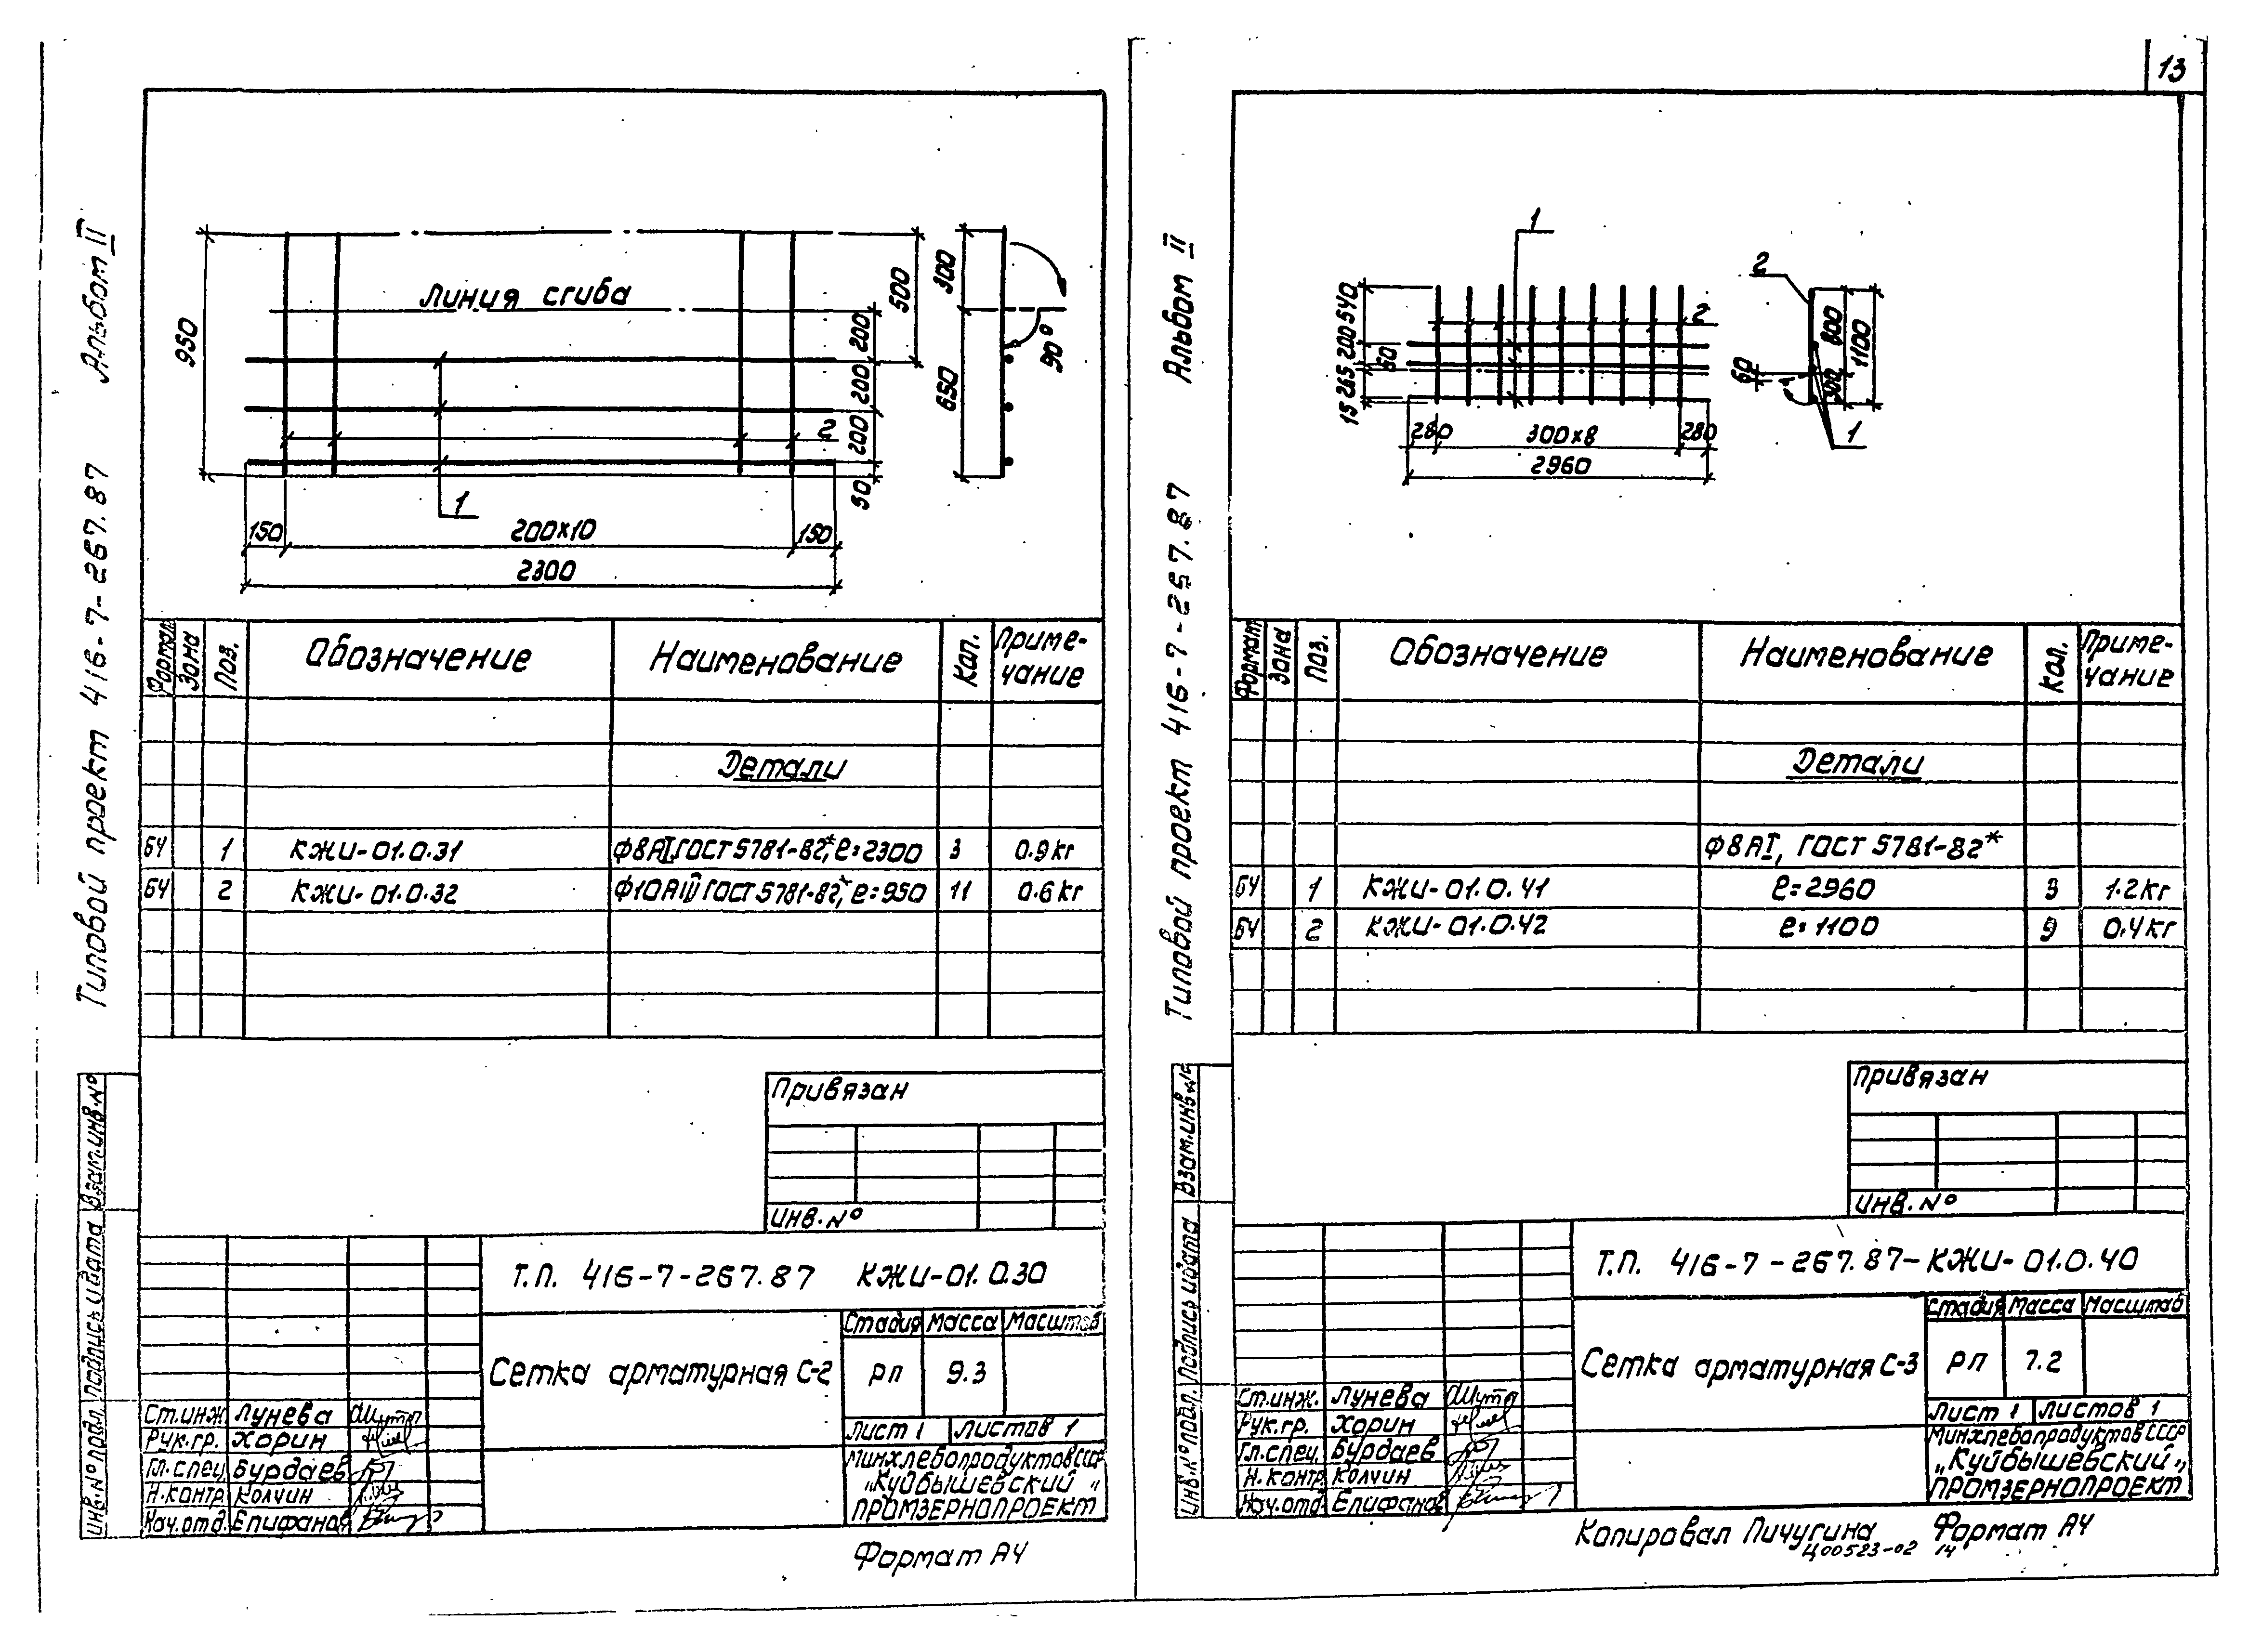 13
Альбом II
Типовой проект 416-7-267.87
Линия сгиба
950
500
200
200
200
50
2
1
150
200×10
150
2300
300
650
90°
Формат
Зона
Поз.
Обозначение
Наименование
Кол.
Приме-
чание
Детали
БЧ 1 КЖИ-01.0.31 Ф8АI, ГОСТ 5781-82*, ℓ=2300 3 0.9 кг
БЧ 2 КЖИ-01.0.32 Ф10АIII ГОСТ 5781-82*, ℓ=950 11 0.6 кг
Привязан
Инв.№
Т.П. 416-7-267.87 КЖИ-01.0.30
Сетка арматурная С-2
Стадия Масса Масштаб
РП 9.3
Лист 1 Листов 1
Минхлебопродуктов СССР
„Куйбышевский"
ПРОМЗЕРНОПРОЕКТ
Ст.инж. Лунева
Рук.гр. Хорин
Гл.спец. Бурдаев
Н.контр. Колчин
Нач.отд. Епифанов
Инв.№ подл. Подпись и дата Взам.инв.№
Формат А4
Альбом II
Типовой проект 416-7-267.87
1
2
540
200
60
265
15
280
300×8
280
2960
2
800
1100
300
60
1
Формат
Зона
Поз.
Обозначение
Наименование
Кол.
Приме-
чание
Детали
Ф8АI, ГОСТ 5781-82*
БЧ 1 КЖИ-01.0.41 ℓ=2960 3 1.2 кг
БЧ 2 КЖИ-01.0.42 ℓ=1100 9 0.4 кг
Привязан
Инв.№
Т.П. 416-7-267.87-КЖИ-01.0.40
Сетка арматурная С-3
Стадия Масса Масштаб
РП 7.2
Лист 1 Листов 1
Минхлебопродуктов СССР
„Куйбышевский"
ПРОМЗЕРНОПРОЕКТ
Ст.инж. Лунева
Рук.гр. Хорин
Гл.спец. Бурдаев
Н.контр. Колчин
Нач.отд. Епифанов
Инв.№ подл. Подпись и дата Взам.инв.№
Копировал Пичугина Формат А4
Ц00523-02 14